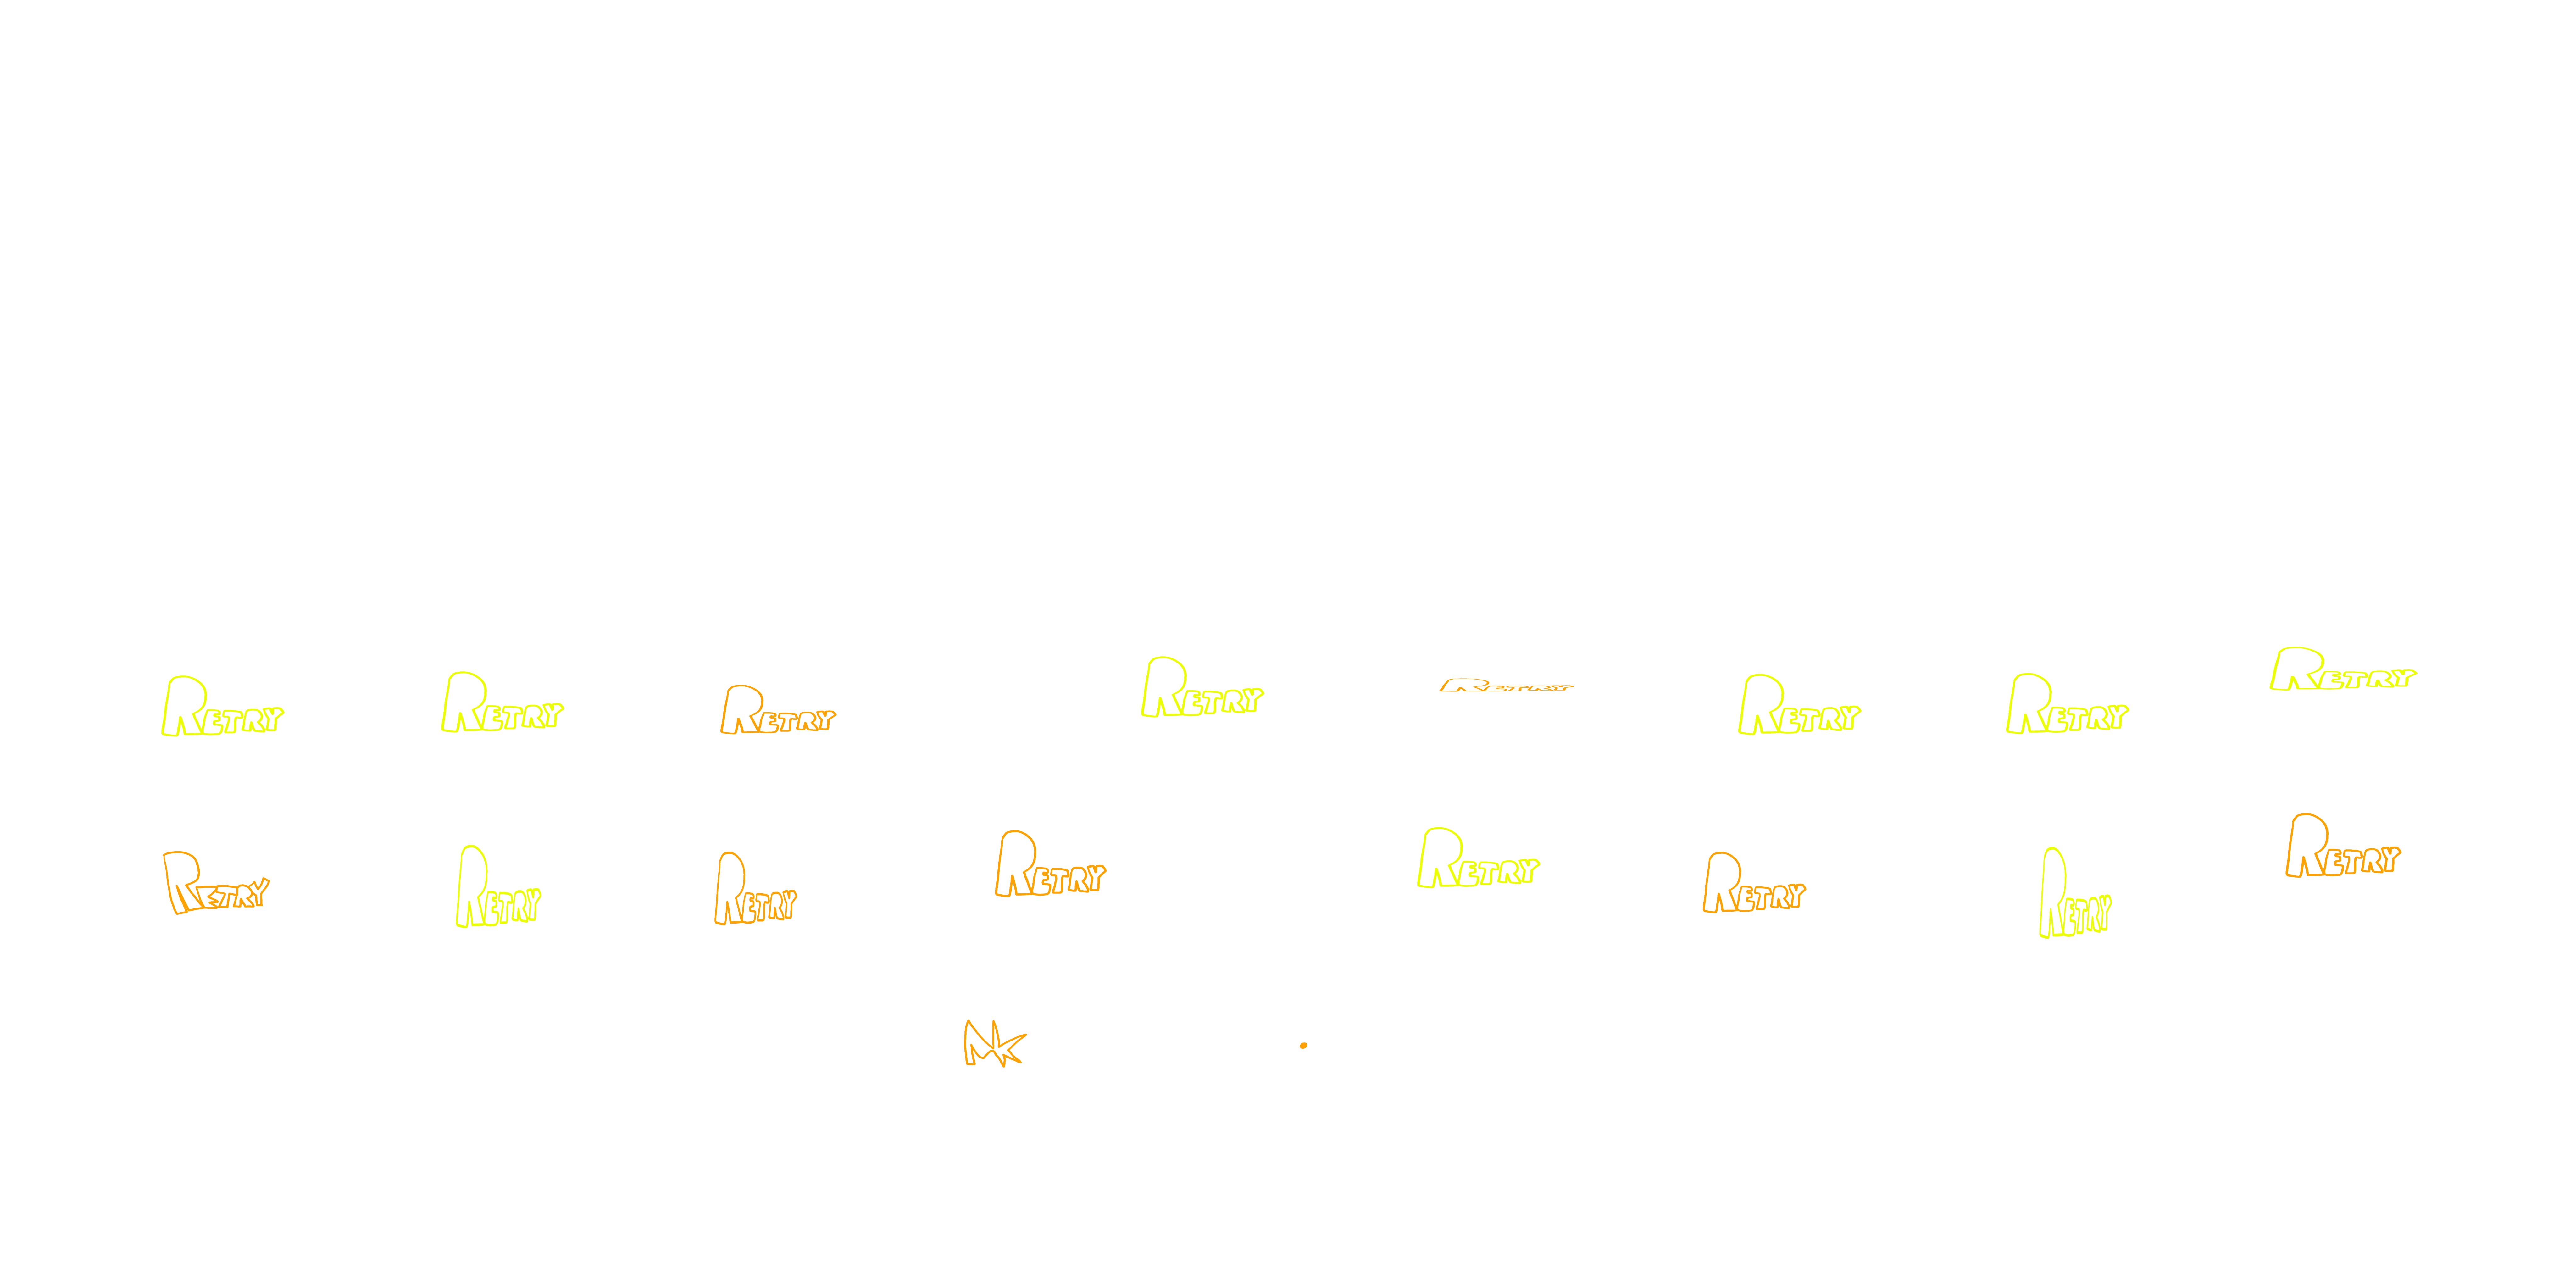 RETRY RETRY RETRY RETRY RETRY RETRY RETRY RETRY
RETRY RETRY RETRY RETRY RETRY RETRY RETRY RETRY